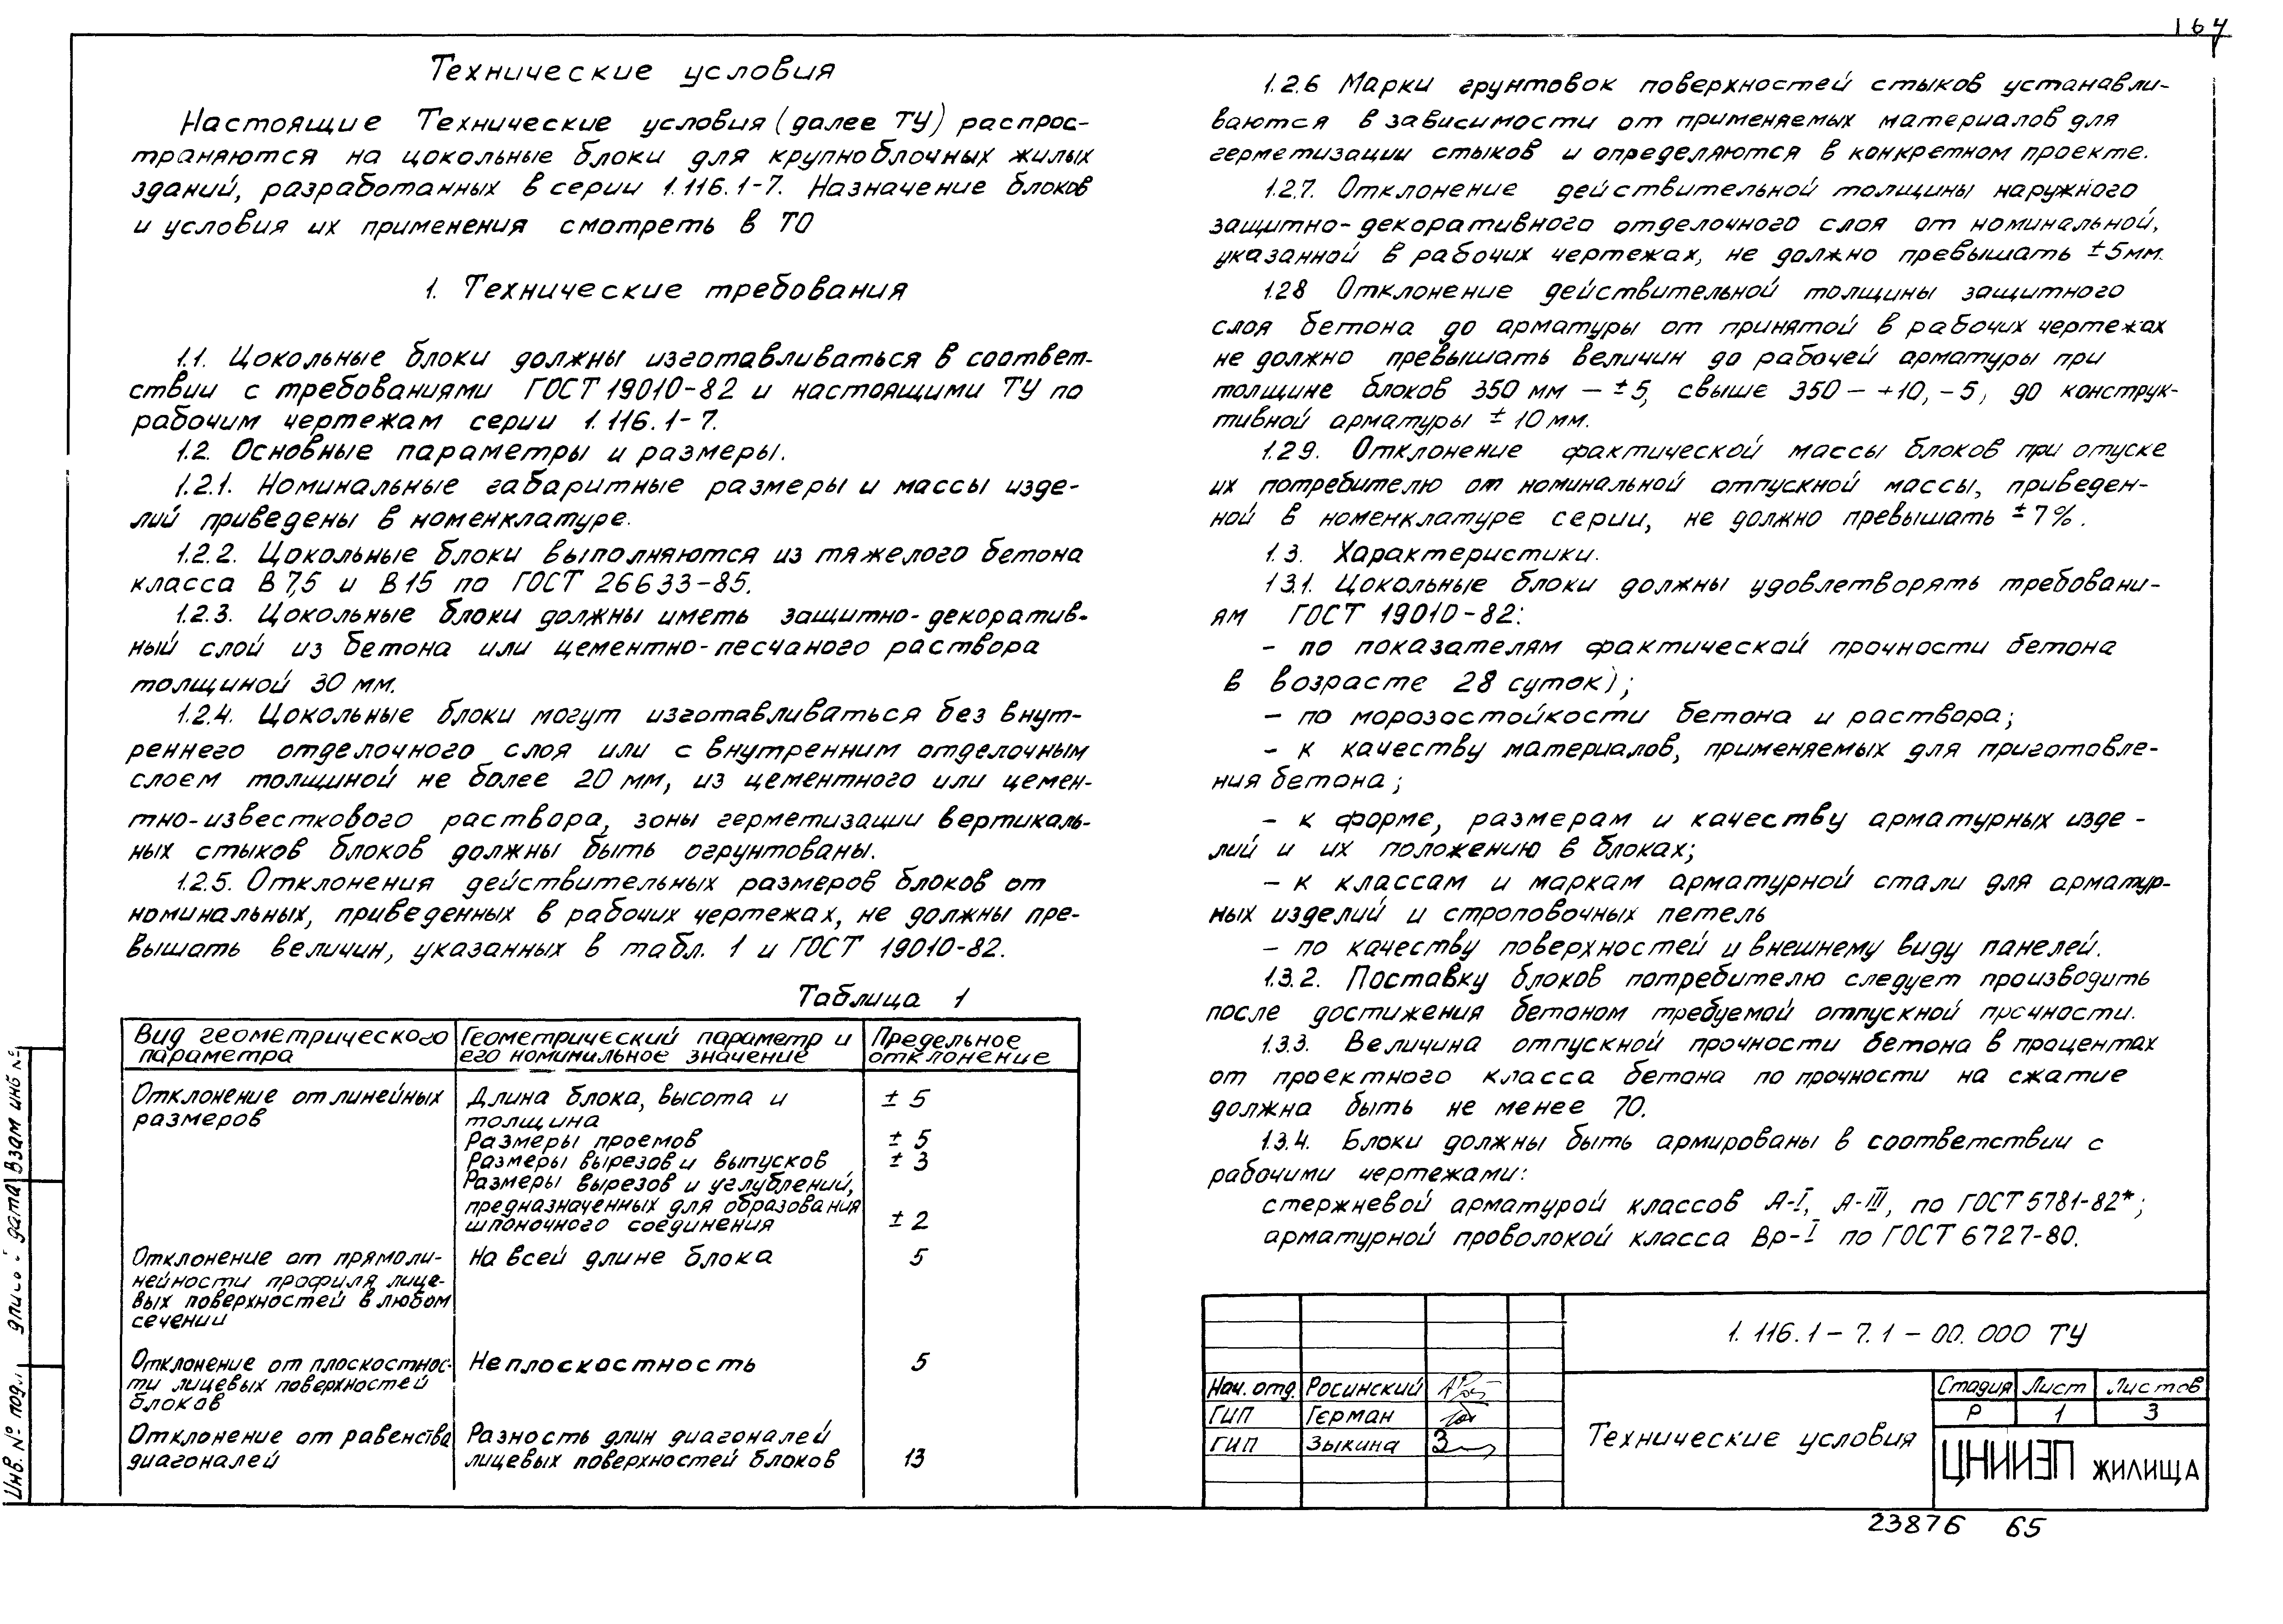 164
Технические условия
Настоящие Технические условия (далее ТУ) распрос-
траняются на цокольные блоки для крупноблочных жилых
зданий, разработанных в серии 1.116.1-7. Назначение блоков
и условия их применения смотреть в ТО
1. Технические требования
1.1. Цокольные блоки должны изготавливаться в соответ-
ствии с требованиями ГОСТ 19010-82 и настоящими ТУ по
рабочим чертежам серии 1.116.1-7.
1.2. Основные параметры и размеры.
1.2.1. Номинальные габаритные размеры и массы изде-
лий приведены в номенклатуре.
1.2.2. Цокольные блоки выполняются из тяжелого бетона
класса В 7,5 и В 15 по ГОСТ 26633-85.
1.2.3. Цокольные блоки должны иметь защитно-декоратив-
ный слой из бетона или цементно-песчаного раствора
толщиной 30 мм.
1.2.4. Цокольные блоки могут изготавливаться без внут-
реннего отделочного слоя или с внутренним отделочным
слоем толщиной не более 20 мм, из цементного или цемен-
тно-известкового раствора, зоны герметизации вертикаль-
ных стыков блоков должны быть огрунтованы.
1.2.5. Отклонения действительных размеров блоков от
номинальных, приведенных в рабочих чертежах, не должны пре-
вышать величин, указанных в табл. 1 и ГОСТ 19010-82.
Таблица 1
Вид геометрического Геометрический параметр и Предельное
параметра его номинильное значение отклонение
Отклонение от линейных Длина блока, высота и ± 5
размеров толщина
Размеры проемов ± 5
Размеры вырезов и выпусков ± 3
Размеры вырезов и углублений,
предназначенных для образования
шпоночного соединения ± 2
Отклонение от прямоли- На всей длине блока 5
нейности профиля лице-
вых поверхностей в любом
сечении
Отклонение от плоскостнос- Неплоскостность 5
ти лицевых поверхностей
блоков
Отклонение от равенства Разность длин диагоналей
диагоналей лицевых поверхностей блоков 13
1.2.6 Марки грунтовок поверхностей стыков устанавли-
ваются в зависимости от применяемых материалов для
герметизации стыков и определяются в конкретном проекте.
1.2.7. Отклонение действительной толщины наружного
защитно-декоративного отделочного слоя от номинальной,
указанной в рабочих чертежах, не должно превышать ±5мм.
1.2.8 Отклонение действительной толщины защитного
слоя бетона до арматуры от принятой в рабочих чертежах
не должно превышать величин до рабочей арматуры при
толщине блоков 350 мм — ±5, свыше 350 — +10, -5, до конструк-
тивной арматуры ± 10 мм.
1.2.9. Отклонение фактической массы блоков при отпуске
их потребителю от номинальной отпускной массы, приведен-
ной в номенклатуре серии, не должно превышать ±7%.
1.3. Характеристики.
1.3.1. Цокольные блоки должны удовлетворять требовани-
ям ГОСТ 19010-82:
- по показателям фактической прочности бетона
в возрасте 28 суток);
- по морозостойкости бетона и раствора;
- к качеству материалов, применяемых для приготовле-
ния бетона;
- к форме, размерам и качеству арматурных изде-
лий и их положению в блоках;
- к классам и маркам арматурной стали для арматур-
ных изделий и строповочных петель
- по качеству поверхностей и внешнему виду панелей.
1.3.2. Поставку блоков потребителю следует производить
после достижения бетоном требуемой отпускной прочности.
1.3.3. Величина отпускной прочности бетона в процентах
от проектного класса бетона по прочности на сжатие
должна быть не менее 70.
1.3.4. Блоки должны быть армированы в соответствии с
рабочими чертежами:
стержневой арматурой классов А-I, А-III, по ГОСТ 5781-82*;
арматурной проволокой класса Вр-I по ГОСТ 6727-80.
1.116.1-7.1-00.000 ТУ
Нач. отд. Росинский
ГИП Герман
ГИП Зыкина
Технические условия
Стадия Лист Листов
Р 1 3
ЦНИИЭП жилища
23876 65
Инв. № под. дата Взам инв №